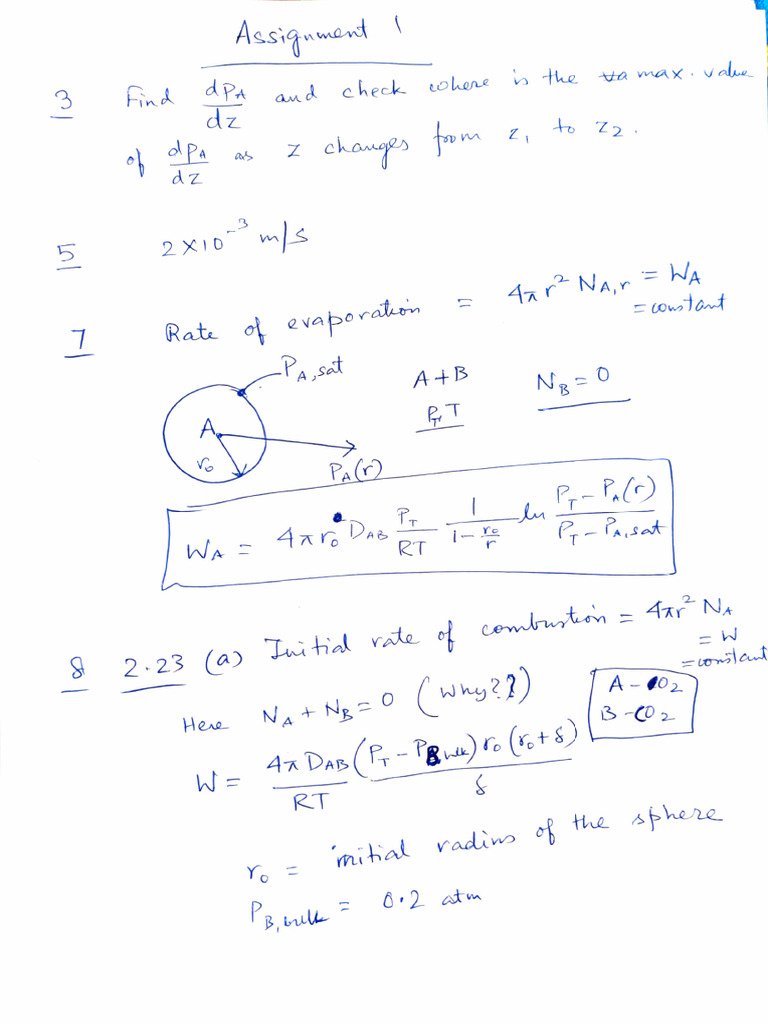 Assignment 1
3 Find dPA/dz and check where is the max. value
of dPA/dz as z changes from z₁ to z₂.
5 2×10⁻³ m/s
7 Rate of evaporation = 4πr² N_A,r = W_A
= constant
P_A,sat
A+B N_B = 0
P_T, T
A
r₀
P_A(r)
W_A = 4πr₀ D_AB P_T/RT 1/(1 - r₀/r) ln (P_T - P_A(r))/(P_T - P_A,sat)
8 2.23 (a) Initial rate of combustion = 4πr² N_A
= W
= constant
Here N_A + N_B = 0 (Why??)
A - CO2
B - O2
W = 4π D_AB (P_T - P_B,bulk) r₀ (r₀+δ) / RT δ
r₀ = initial radius of the sphere
P_B,bulk = 0.2 atm